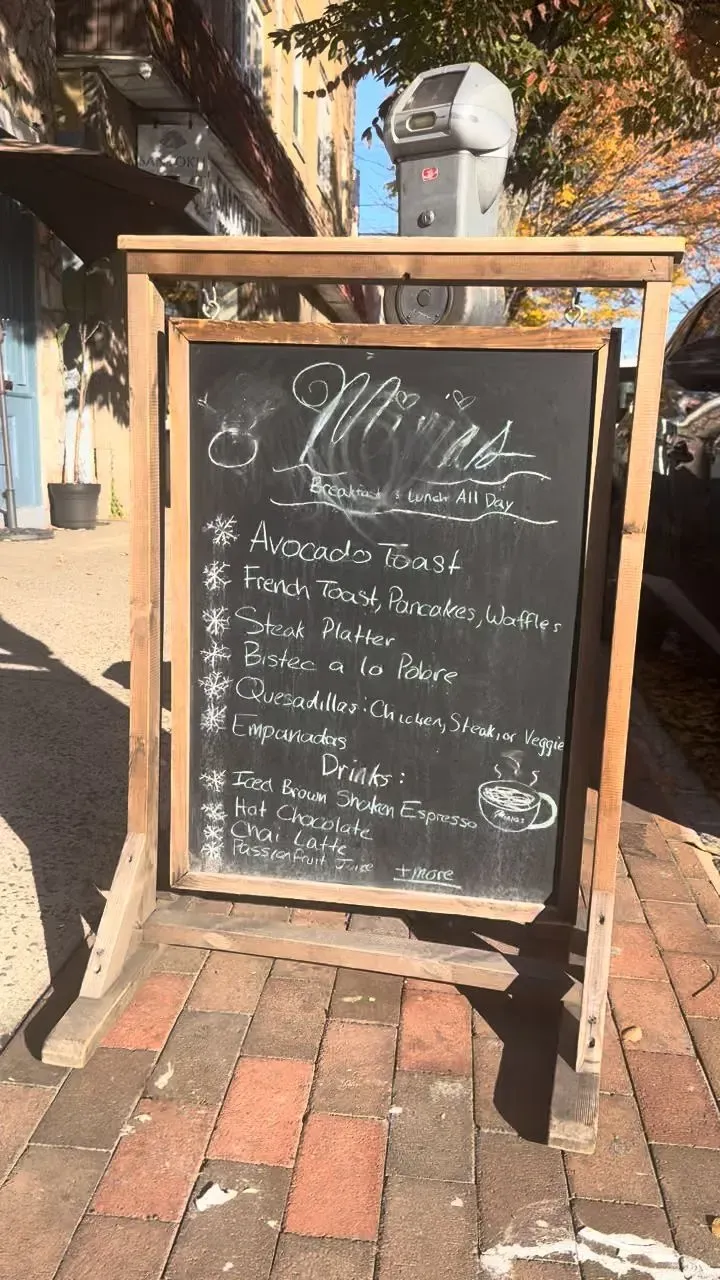 Breakfast & Lunch All Day
Avocado Toast
French Toast, Pancakes, Waffles
Steak Platter
Bistec a lo Pobre
Quesadillas: Chicken, Steak, or Veggie
Empanadas
Drinks:
Iced Brown Shaken Espresso
Hot Chocolate
Chai Latte
Passionfruit Juice
+more